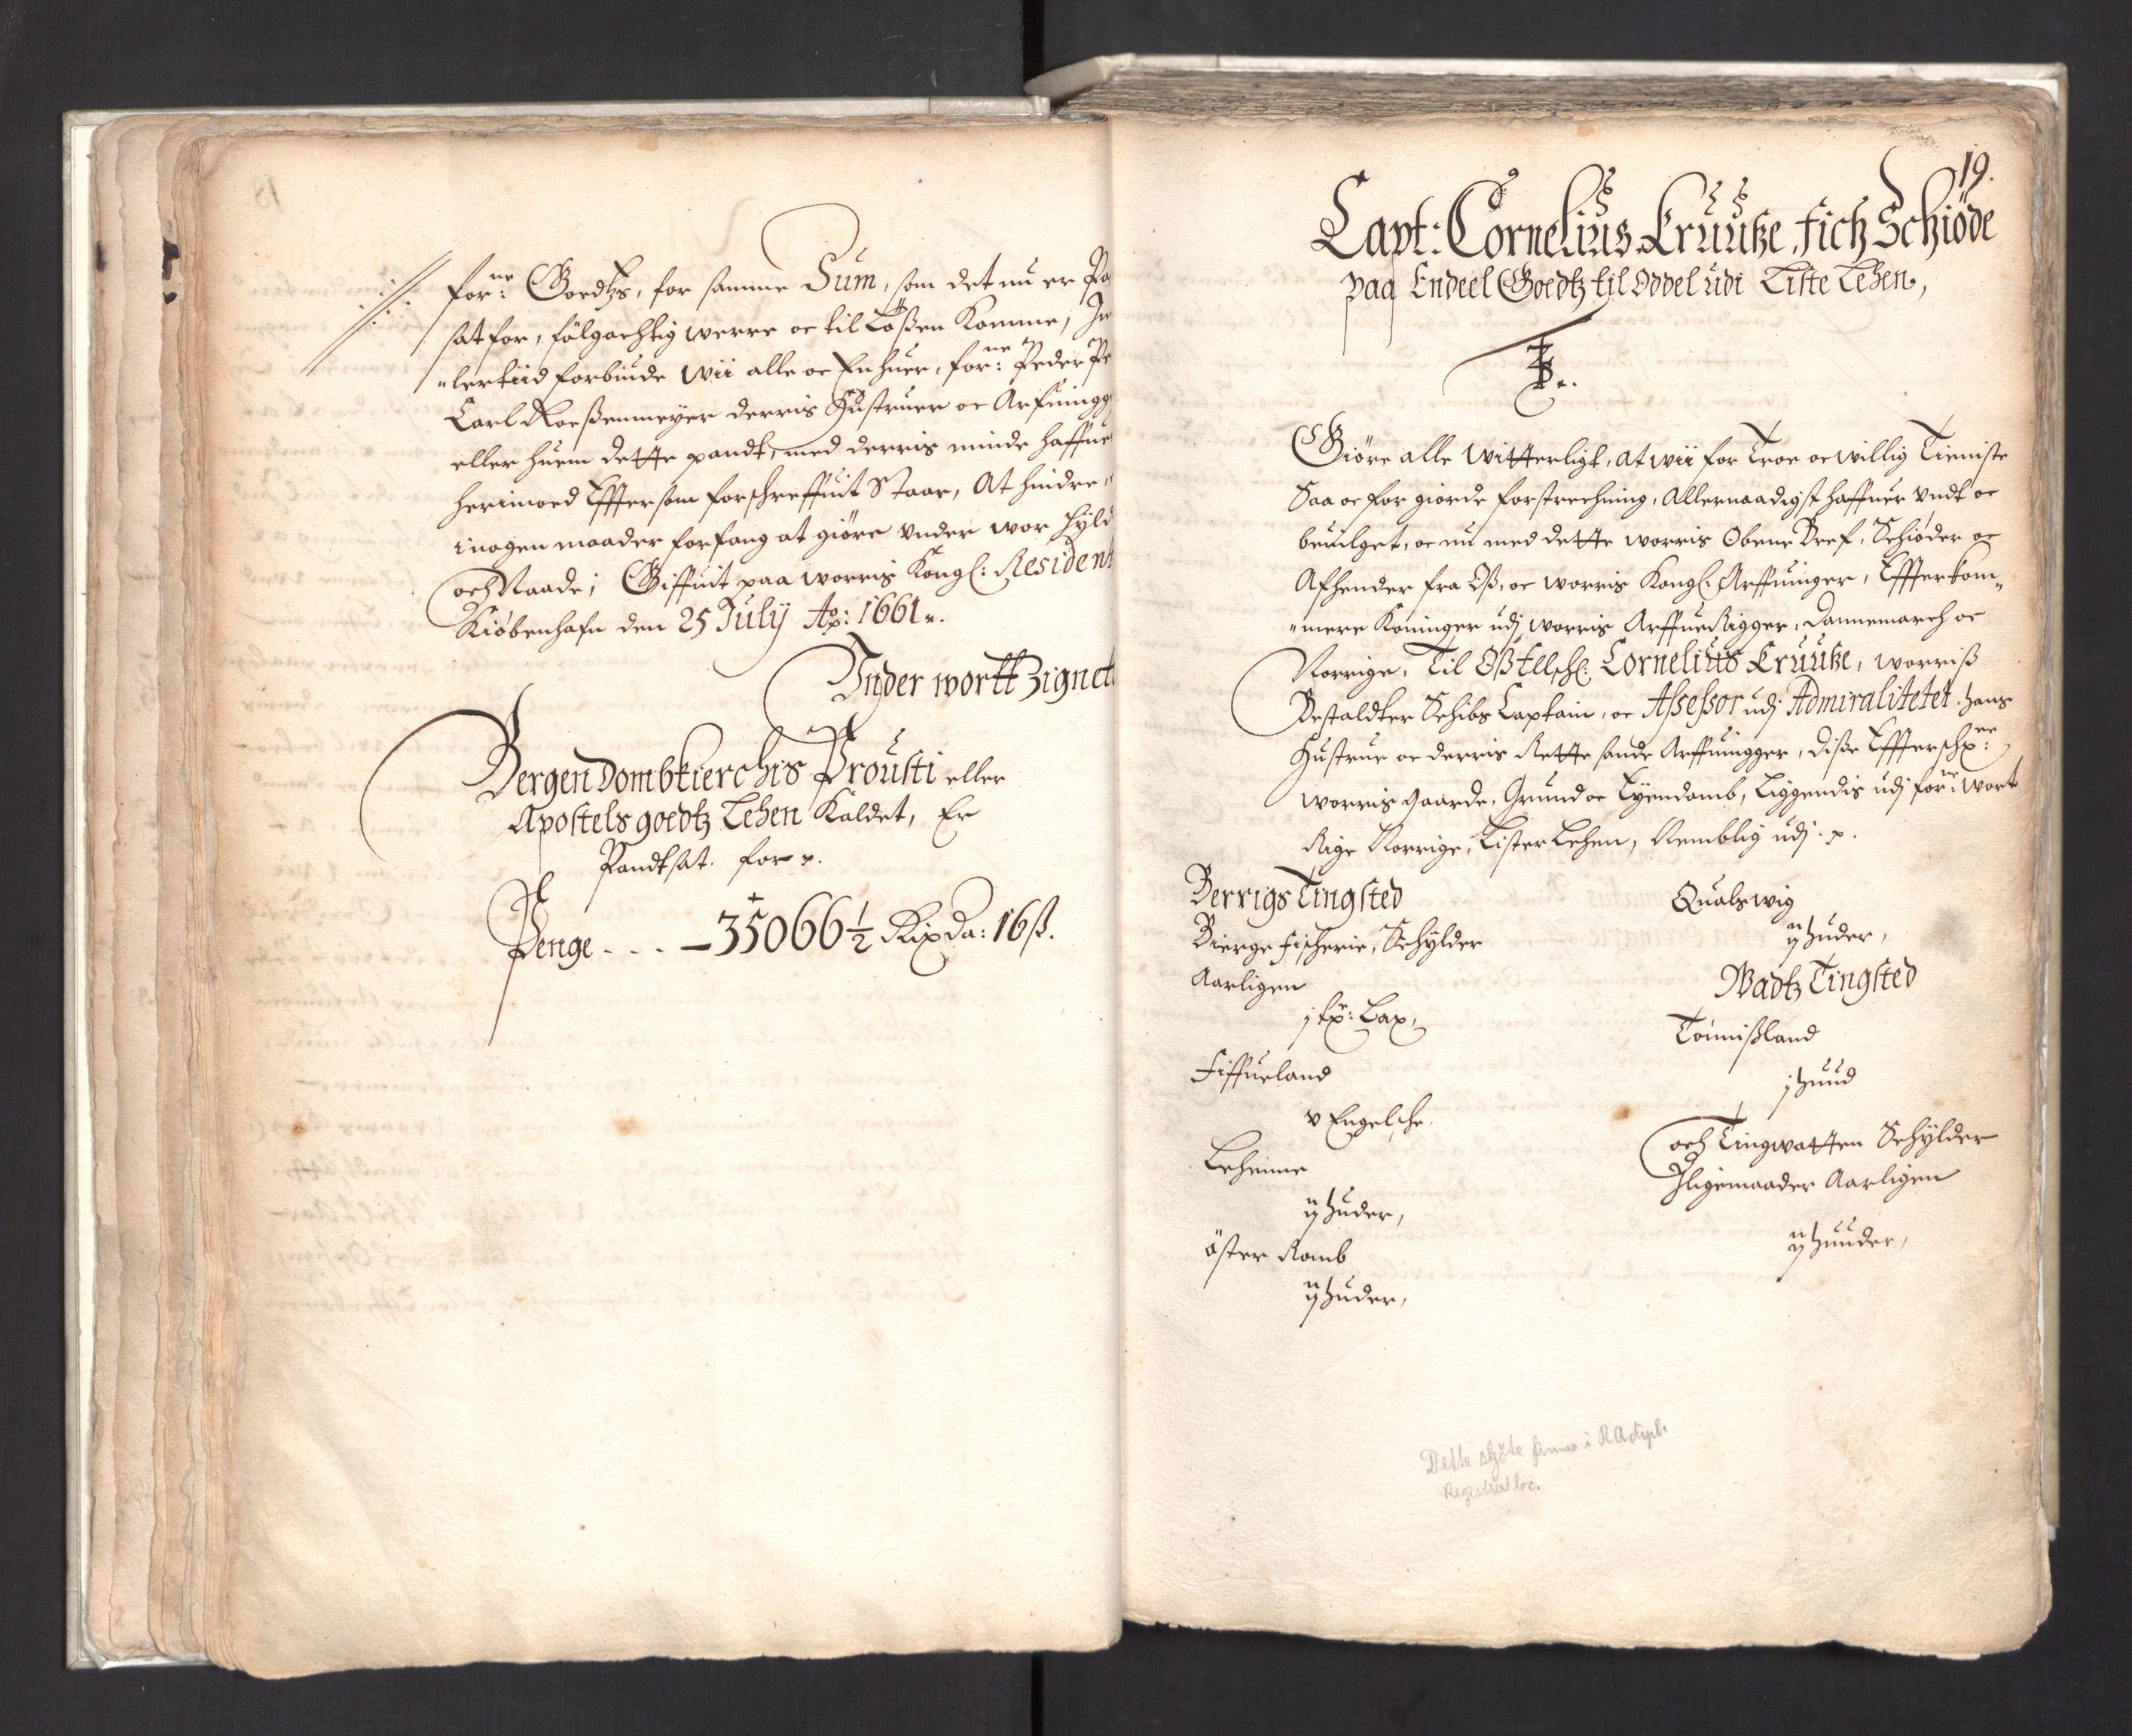 for:ne Goedtzs, for samme Sum, som det nu er
sat for, fölgachtig werre oc til Lößen Komme,
"lertiid forbiude Wii alle oc En huer, for:ne Peder
Carl Roeßenmeyer derris Hustruer oc Arfuingge
eller huem dette pandt, med derris minde haffue
herimoed Effter som forschreffuit Staar, At hindre
i nogen maader forfang at giöre under wor Hyld
och Naade; Giffuit paa worris Kongl: Resident
Kiöbenhafn den 25 Julij Ao: 1661.
Under wortt Zignet
Bergen Dombkierchis Prousti eller
Apostels goedtz Lehen Kaldet, Er
Pandtsat for
Penge - - - - 35066½ Rixda: 16 ß.
19.
Capt: Cornelius Kruutze, fich Schiöde
paa Endeel Goedtz til Oddel udi Liste Lehen,
Giöre alle Witterligt, at wii for Troe oc willig Tieniste
Saa oc for giorde forstrechning, Allernaadigst haffuer undt oc
beuilget, oc nu med dette worris Obene Bref, Schiöder oc
Afhender fra Oß, oc worris Kongl. Arffuinger, Effterkom"
"mere Koninger udj worris Arffue Rigger, Dannemarch oc
Norrige, Til Oß Ellschl: Cornelius Kruutze, worriß
Bestaldter Schibs Captain, oc Assessor udj Admiralitetet, hans
Hustrue oc derris Rette sande Arffuingger, diße Effterschr:ne
worris gaarde, Grund oc Eyendomb, Liggendis udj for:ne wort
Rige Norrige, Lister Lehen, Nemblig udj.
Berrigs Tingsted
Bierge fischerie, Schylder
Aarligen
j Lax,
Fiffueland
v Engelsche.
Leheime
ij huder,
öster Ramb
ij huder,
Qualswig
ij huder,
Wadtz Tingsted
Tönnißland
j huud
och Tingwatten Schylder
Jligemaader Aarligen
ij huuder,
Dette skjöte finnes i RA dipl.